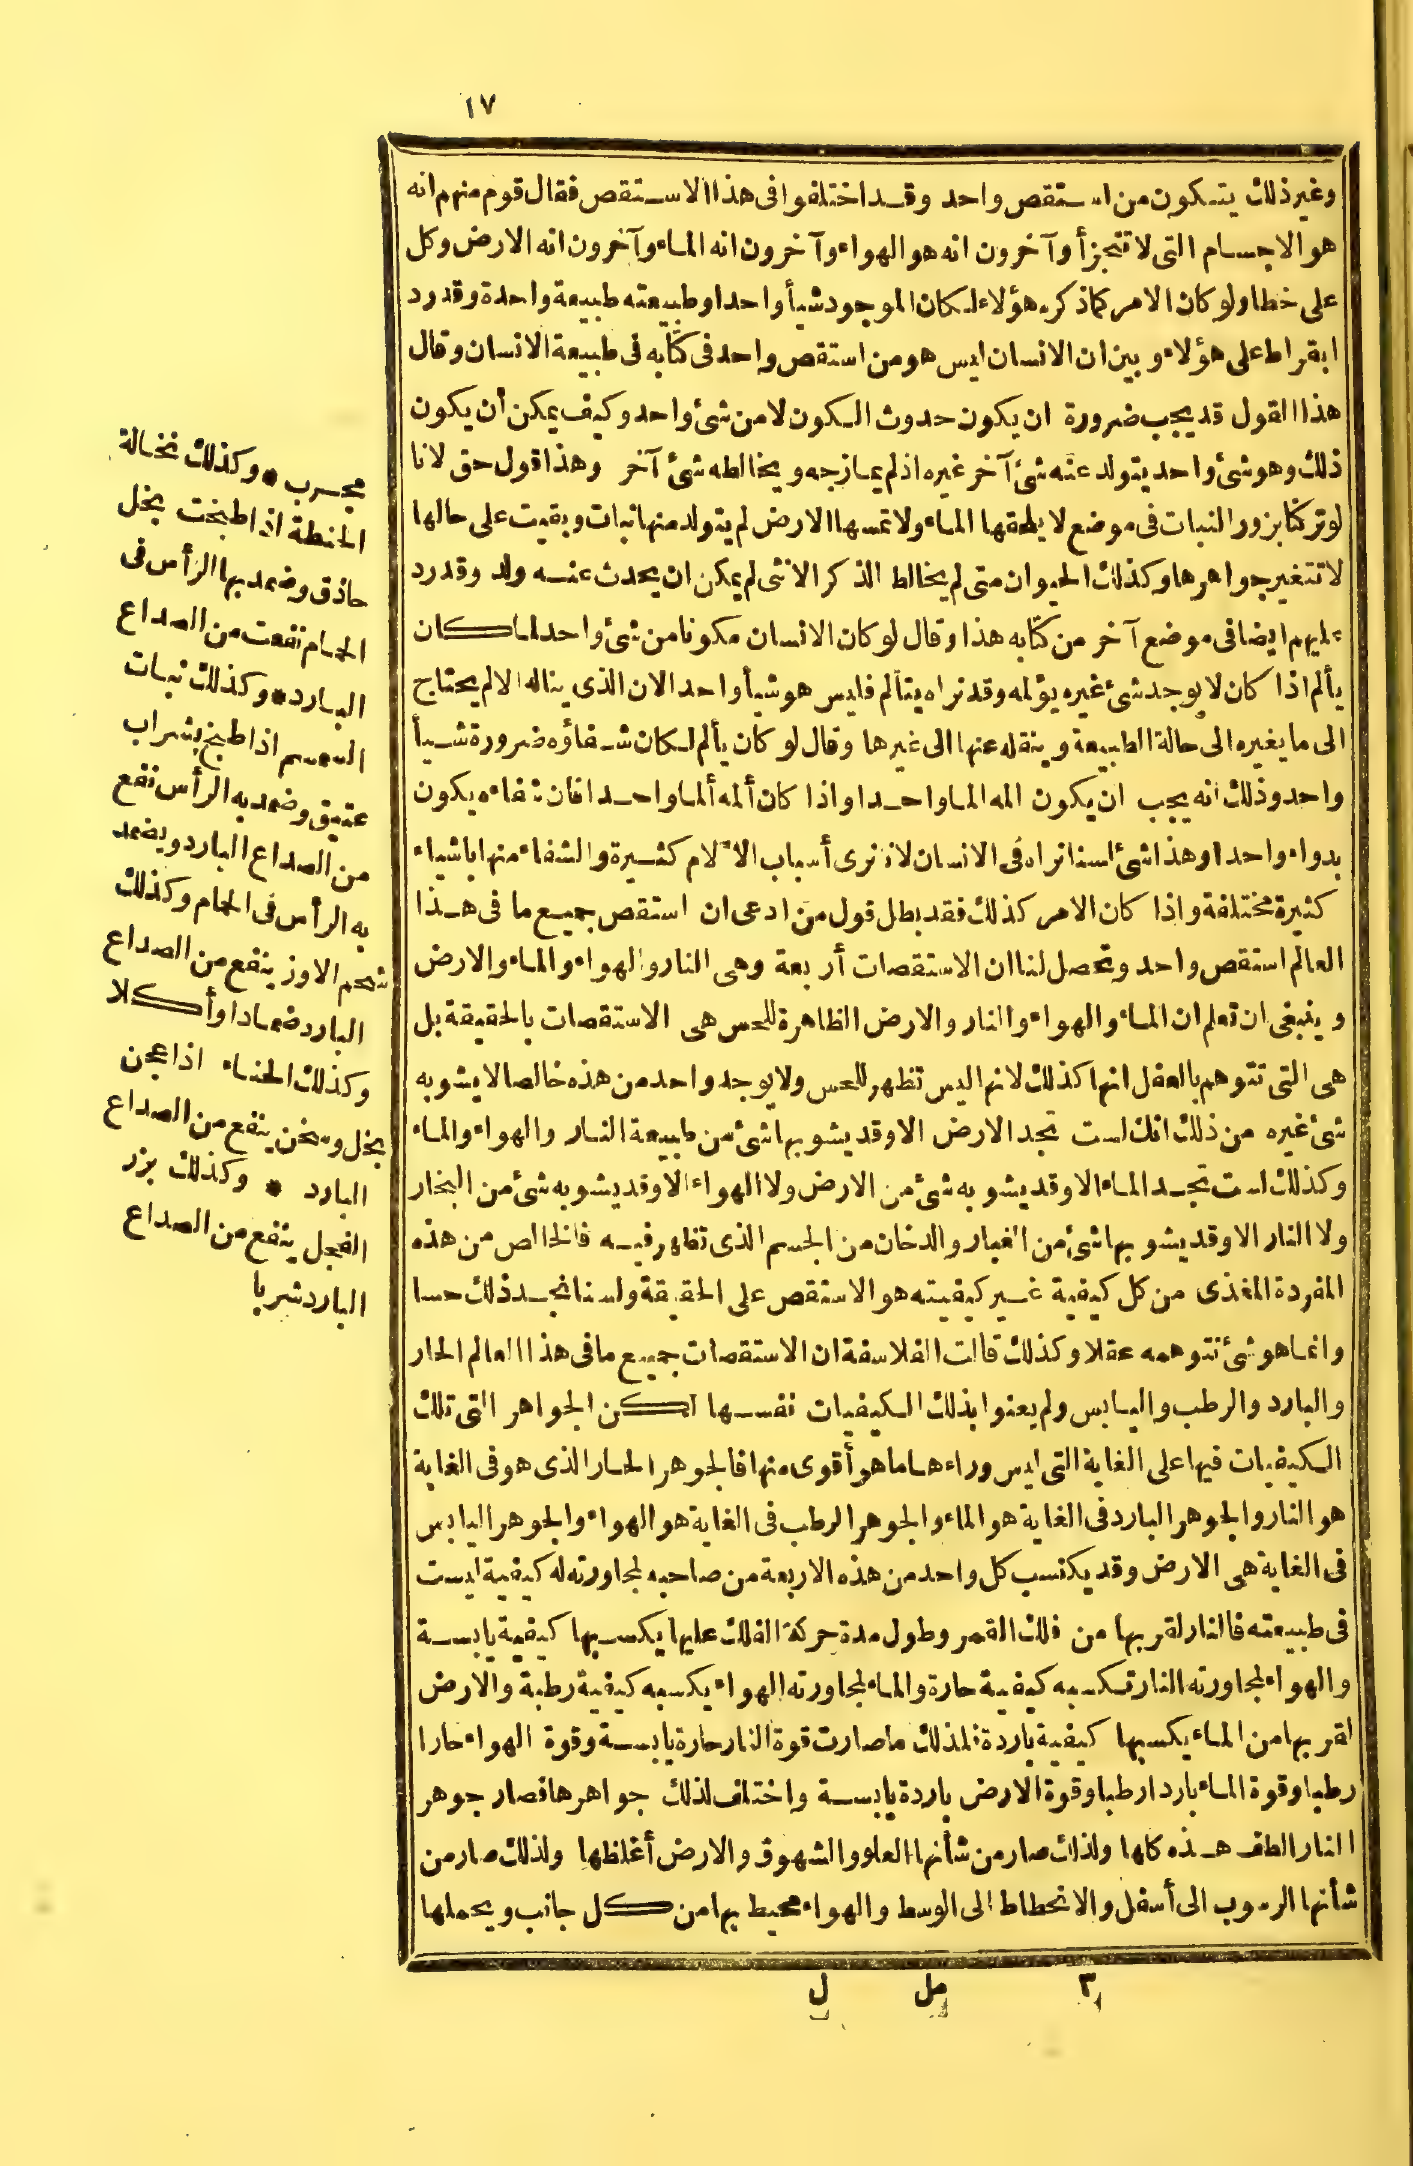 ١٧
وغير ذلك يتكون من استقص واحد وقد اختلفوا فى هذا الاستقص فقال قوم منهم انه
هو الاجسام التى لا تتجزأ وآخرون انه هو الهواء وآخرون انه الماء وآخرون انه الارض وكل
على خطا ولو كان الامر كما ذكره هؤلاء لكان الموجود شيأ واحدا وطبيعته طبيعة واحدة وقد رد
ابقراط على هؤلاء وبين ان الانسان ليس هو من استقص واحد فى كتابه فى طبيعة الانسان وقال
هذا القول قد يجب ضرورة ان يكون حدوث الكون لا من شئ واحد وكيف يمكن أن يكون
ذلك وهو شئ واحد يتولد عنه شئ آخر غيره اذ لم يمازجه ويخالطه شئ آخر وهذا قول حق لانا
لو تركنا بزور النبات فى موضع لا يلحقها الماء ولا تمسها الارض لم يتولد منها نبات وبقيت على حالها
لا تتغير جواهرها وكذلك الحيوان متى لم يخالط الذكر الانثى لم يمكن ان يحدث عنه ولد وقد رد
عليهم ايضا فى موضع آخر من كتابه هذا وقال لو كان الانسان مكونا من شئ واحد لما كان
يألم اذا كان لا يوجد شئ غيره يؤلمه وقد نراه يتألم فليس هو شيأ واحد الان الذى يناله الالم يحتاج
الى ما يغيره الى حالة الطبيعة وينقله عنها الى غيرها وقال لو كان يألم لكان شفاؤه ضرورة شيأ
واحد وذلك أنه يجب ان يكون المه الما واحدا واذا كان ألمه ألما واحدا فان شفاءه يكون
بدواء واحد او هذا شئ لسنا نراه فى الانسان لانا نرى أسباب الآلام كثيرة والشفاء منها باشياء
كثيرة مختلفة واذا كان الامر كذلك فقد بطل قول من ادعى ان استقص جميع ما فى هذا
العالم استقص واحد وتحصل لنا ان الاستقصات أربعة وهى النار والهواء والماء والارض
وينبغى ان تعلم ان الماء والهواء والنار والارض الظاهرة للحس هى الاستقصات بالحقيقة بل
هى التى تتوهم بالعقل انها كذلك لانها ليس تظهر للحس ولا يوجد واحد من هذه خالصا لا يشوبه
شئ غيره من ذلك انك لست تجد الارض الا وقد يشوبها شئ من طبيعة النار والهواء والماء
وكذلك لست تجد الماء الا وقد يشوبه شئ من الارض ولا الهواء الا وقد يشوبه شئ من البخار
ولا النار الا وقد يشوبها شئ من الغبار والدخان من الجسم الذى تظهر فيه فالخالص من هذه
المفردة المغذى من كل كيفية غير كيفيته هو الاستقص على الحقيقة ولسنا نجد ذلك حسا
وانما هو شئ نتوهمه عقلا وكذلك قالت الفلاسفة ان الاستقصات جميع ما فى هذا العالم الحار
والبارد والرطب واليابس ولم يعنوا بذلك الكيفيات نفسها لكن الجواهر التى تلك
الكيفيات فيها على الغاية التى ليس وراءها ما هو أقوى منها فالجوهر الحار الذى هو فى الغاية
هو النار والجوهر البارد فى الغاية هو الماء والجوهر الرطب فى الغاية هو الهواء والجوهر اليابس
فى الغاية هى الارض وقد يكتسب كل واحد من هذه الاربعة من صاحبه لمجاورته له كيفية ليست
فى طبيعته فالنار لقربها من فلك القمر وطول مدة حركة الفلك عليها يكسبها كيفية يابسة
والهواء لمجاورته النار تكسبه كيفية حارة والماء لمجاورته الهواء يكسبه كيفية رطبة والارض
لقربها من الماء يكسبها كيفية باردة فلذلك ما صارت قوة النار حارة يابسة وقوة الهواء حارا
رطبا وقوة الماء باردا رطبا وقوة الارض باردة يابسة واختلف لذلك جواهرها فصار جوهر
النار الطف هذه كلها ولذلك صار من شأنها العلو والشهوق والارض أغلظها ولذلك صار من
شأنها الرسوب الى أسفل والانحطاط الى الوسط والهواء محيط بها من كل جانب ويحملها
٣ مل ل
مجرب * وكذلك نخالة
الحنطة اذا طبخت بخل
حاذق وضمد بها الرأس فى
الحمام نفعت من الصداع
البارد * وكذلك نبات
السمسم اذا طبخ بشراب
عتيق وضمد به الرأس نفع
من الصداع البارد ويضمد
به الرأس فى الحمام وكذلك
شحم الاوز ينفع من الصداع
البارد ضمادا وأكلا
وكذلك الحناء اذا عجن
بخل وسخن ينفع من الصداع
البارد * وكذلك بزر
الفجل ينفع من الصداع
البارد شربا